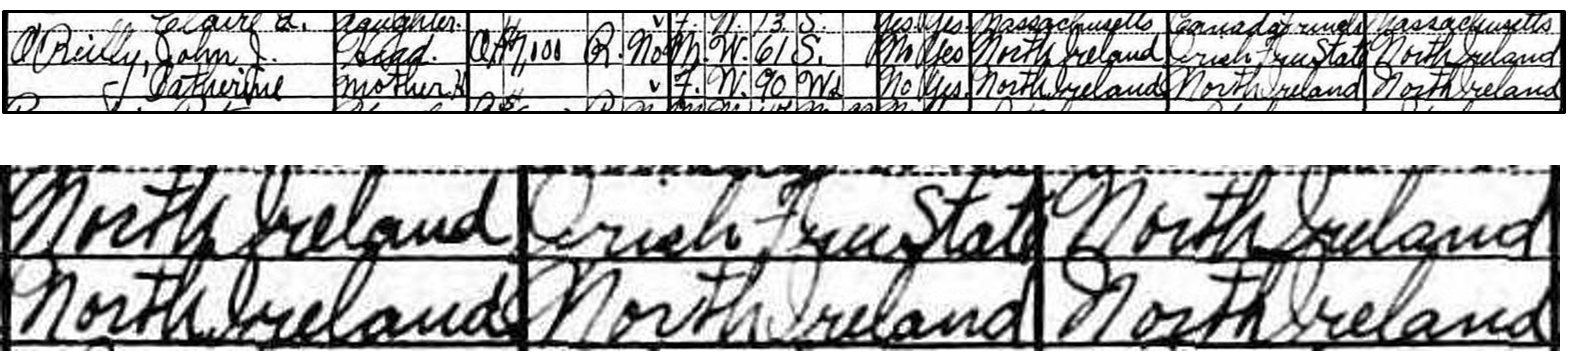 Claire A. daughter. v F. W. 13 S. Yes Yes Massachusetts Canada French Massachusetts
O'Reilly, John J. Head. O 7,000 R. No M. W. 61 S. No Yes North Ireland Irish Free State North Ireland
— Catherine Mother H v F. W. 90 Wd No Yes. North Ireland North Ireland North Ireland
North Ireland Irish Free State North Ireland
North Ireland North Ireland North Ireland